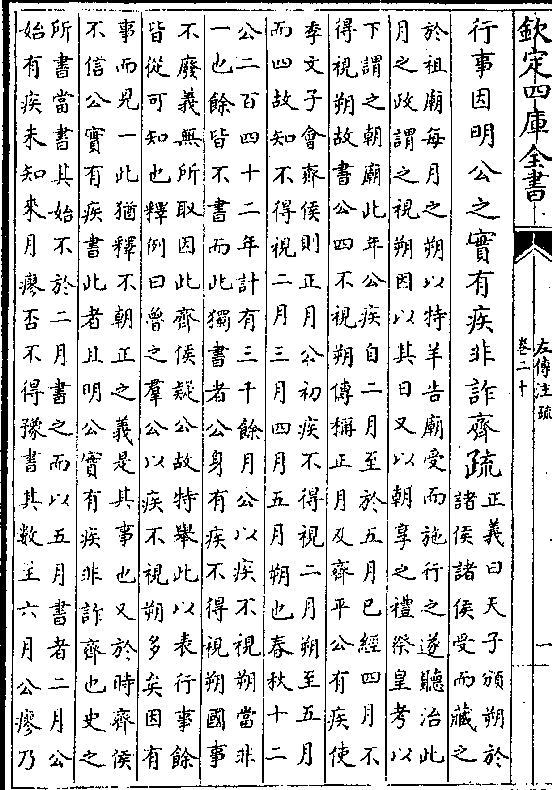 欽定四庫全書
左傳注疏
卷二十
一
行事因明公之實有疾非詐齊疏
正義曰天子頒朔於
諸侯諸侯受而藏之
於祖廟每月之朔以特羊告廟受而施行之遂聽治此
月之政謂之視朔因以其日又以朝享之禮祭皇考以
下謂之朝廟此年公疾自二月至於五月已經四月不
得視朔故書公四不視朔傳稱正月及齊平公有疾使
季文子會齊侯則正月公初疾不得視二月朔至五月
而四故知不得視二月三月四月五月朔也春秋十二
公二百四十二年計有三千餘月公以疾不視朔當非
一也餘皆不書而此獨書者公身有疾不得視朔國事
不廢義無所取因此齊侯疑公故特舉此以表行事餘
皆從可知也釋例曰魯之羣公以疾不視朔多矣因有
事而見一此猶釋不朝正之義是其事也又於時齊侯
不信公實有疾書此者且明公實有疾非詐齊也史之
所書當書其始不於二月書之而以五月書者二月公
始有疾未知來月瘳否不得豫書其數至六月公瘳乃